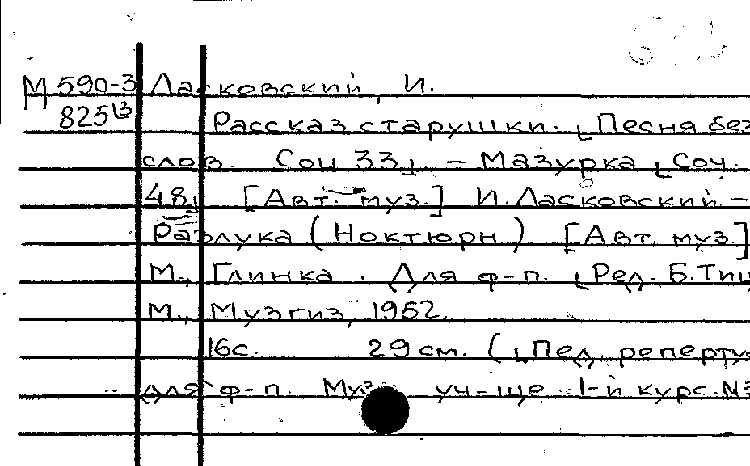 М 590-3 Ласковский, И.
825 Рассказ старушки. [Песня без
слов. Соч 33] - Мазурка [Соч.
48] [Авт. муз.] И. Ласковский. -
Разлука (Ноктюрн) [Авт. муз]
М. Глинка. Для ф-п. [Ред. Б. Тиц
М., Музгиз, 1952.
16с. 29 см. ([Пед. реперту
для ф-п. Муз. уч-ще 1-й курс. №3